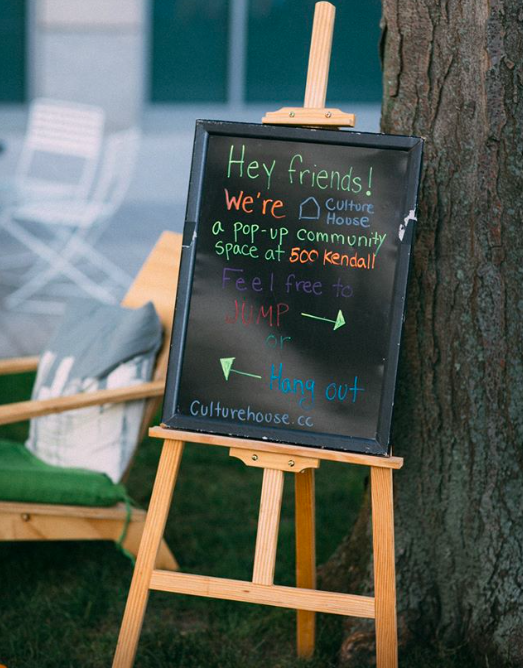 Hey friends!
We're Culture
House
a pop-up community
space at 500 Kendall
Feel free to
JUMP
or
Hang out
Culturehouse.cc